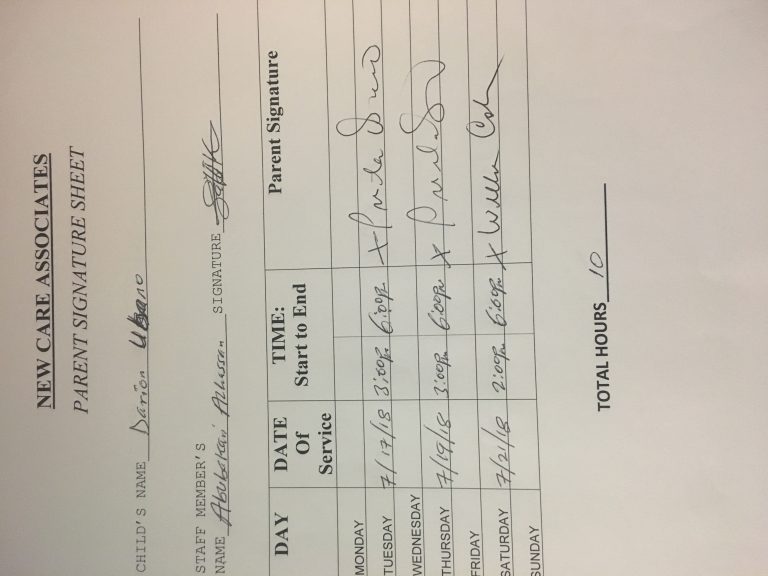 NEW CARE ASSOCIATES
PARENT SIGNATURE SHEET
CHILD'S NAME Darion
STAFF MEMBER'S
NAME Abubakari Alhassan SIGNATURE
DAY DATE Of Service TIME: Start to End Parent Signature
MONDAY
TUESDAY 7/17/18 3:00pm 6:00pm X
WEDNESDAY
THURSDAY 7/19/18 3:00pm 6:00pm X
FRIDAY
SATURDAY 7/2/18 2:00pm 6:00pm X
SUNDAY
TOTAL HOURS 10